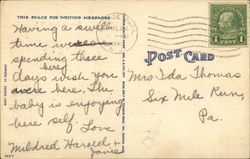 THIS SPACE FOR WRITING MESSAGES
POST CARD
Having a swell
time
spending these
here
days wish you
were here. The
baby is enjoying
here self. Love
Mildred Harold &
Mrs Ida Thomas
Six Mile Run,
Pa.